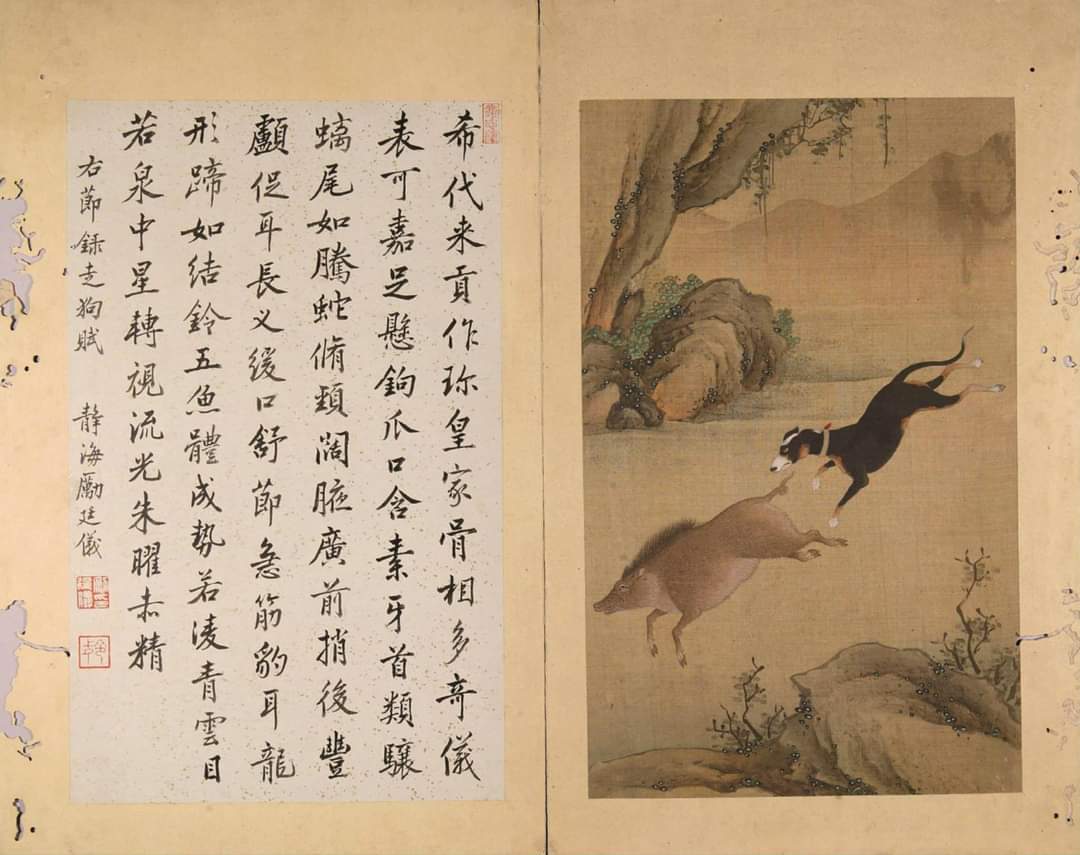 希代来貢作珎皇家骨相多奇儀
表可嘉足懸鉤爪口含素牙首類驤
螭尾如騰蛇脩頸闊腋廣前捎後豐
顱促耳長叉緩口舒節急筋豹耳龍
形蹄如結鈴五魚體成勢若凌青雲目
若泉中星轉視流光朱曜赤精
右節録走狗賦 靜海勵廷儀